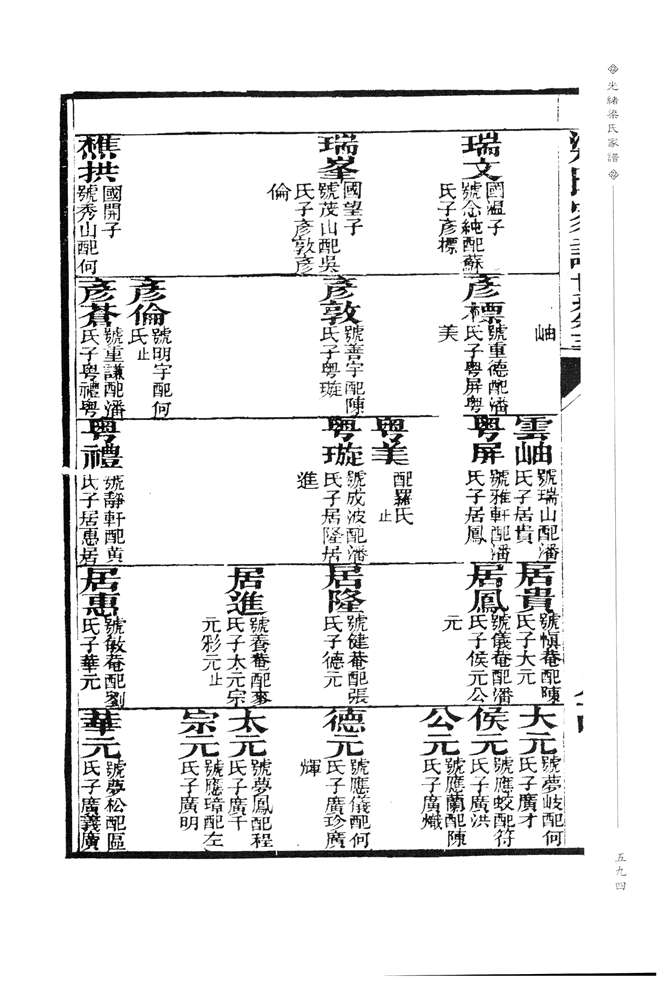 光緒梁氏家譜
瑞文
國温子
號念純配蘇
氏子彥標
瑞峯
國望子
號茂山配吳
氏子彥敦彥
倫
樵拱
國開子
號秀山配何
岫
彥標
號重德配潘
氏子粤屏粤
美
彥敦
號善宇配陳
氏子粤璇
彥倫
號明宇配何
氏止
彥蒼
號重謙配潘
氏子粤禮粤
雲岫
號瑞山配潘
氏子居貴
粤屏
號雅軒配潘
氏子居鳳
粤美
配羅氏
止
粤璇
號成波配潘
氏子居隆居
進
粤禮
號靜軒配黄
氏子居惠居
居貴
號慎菴配陳
氏子大元
居鳳
號儀菴配潘
氏子侯元公
元
居隆
號健菴配張
氏子德元
居進
號養菴配麥
氏子太元宗
元彩元止
居惠
號敏菴配劉
氏子華元
大元
號夢岐配何
氏子廣才
侯元
號應蛟配符
氏子廣洪
公元
號應蘭配陳
氏子廣熾
德元
號應儀配何
氏子廣珍廣
輝
太元
號夢鳳配程
氏子廣千
宗元
號應璋配左
氏子廣明
華元
號夢松配區
氏子廣義廣
五九四